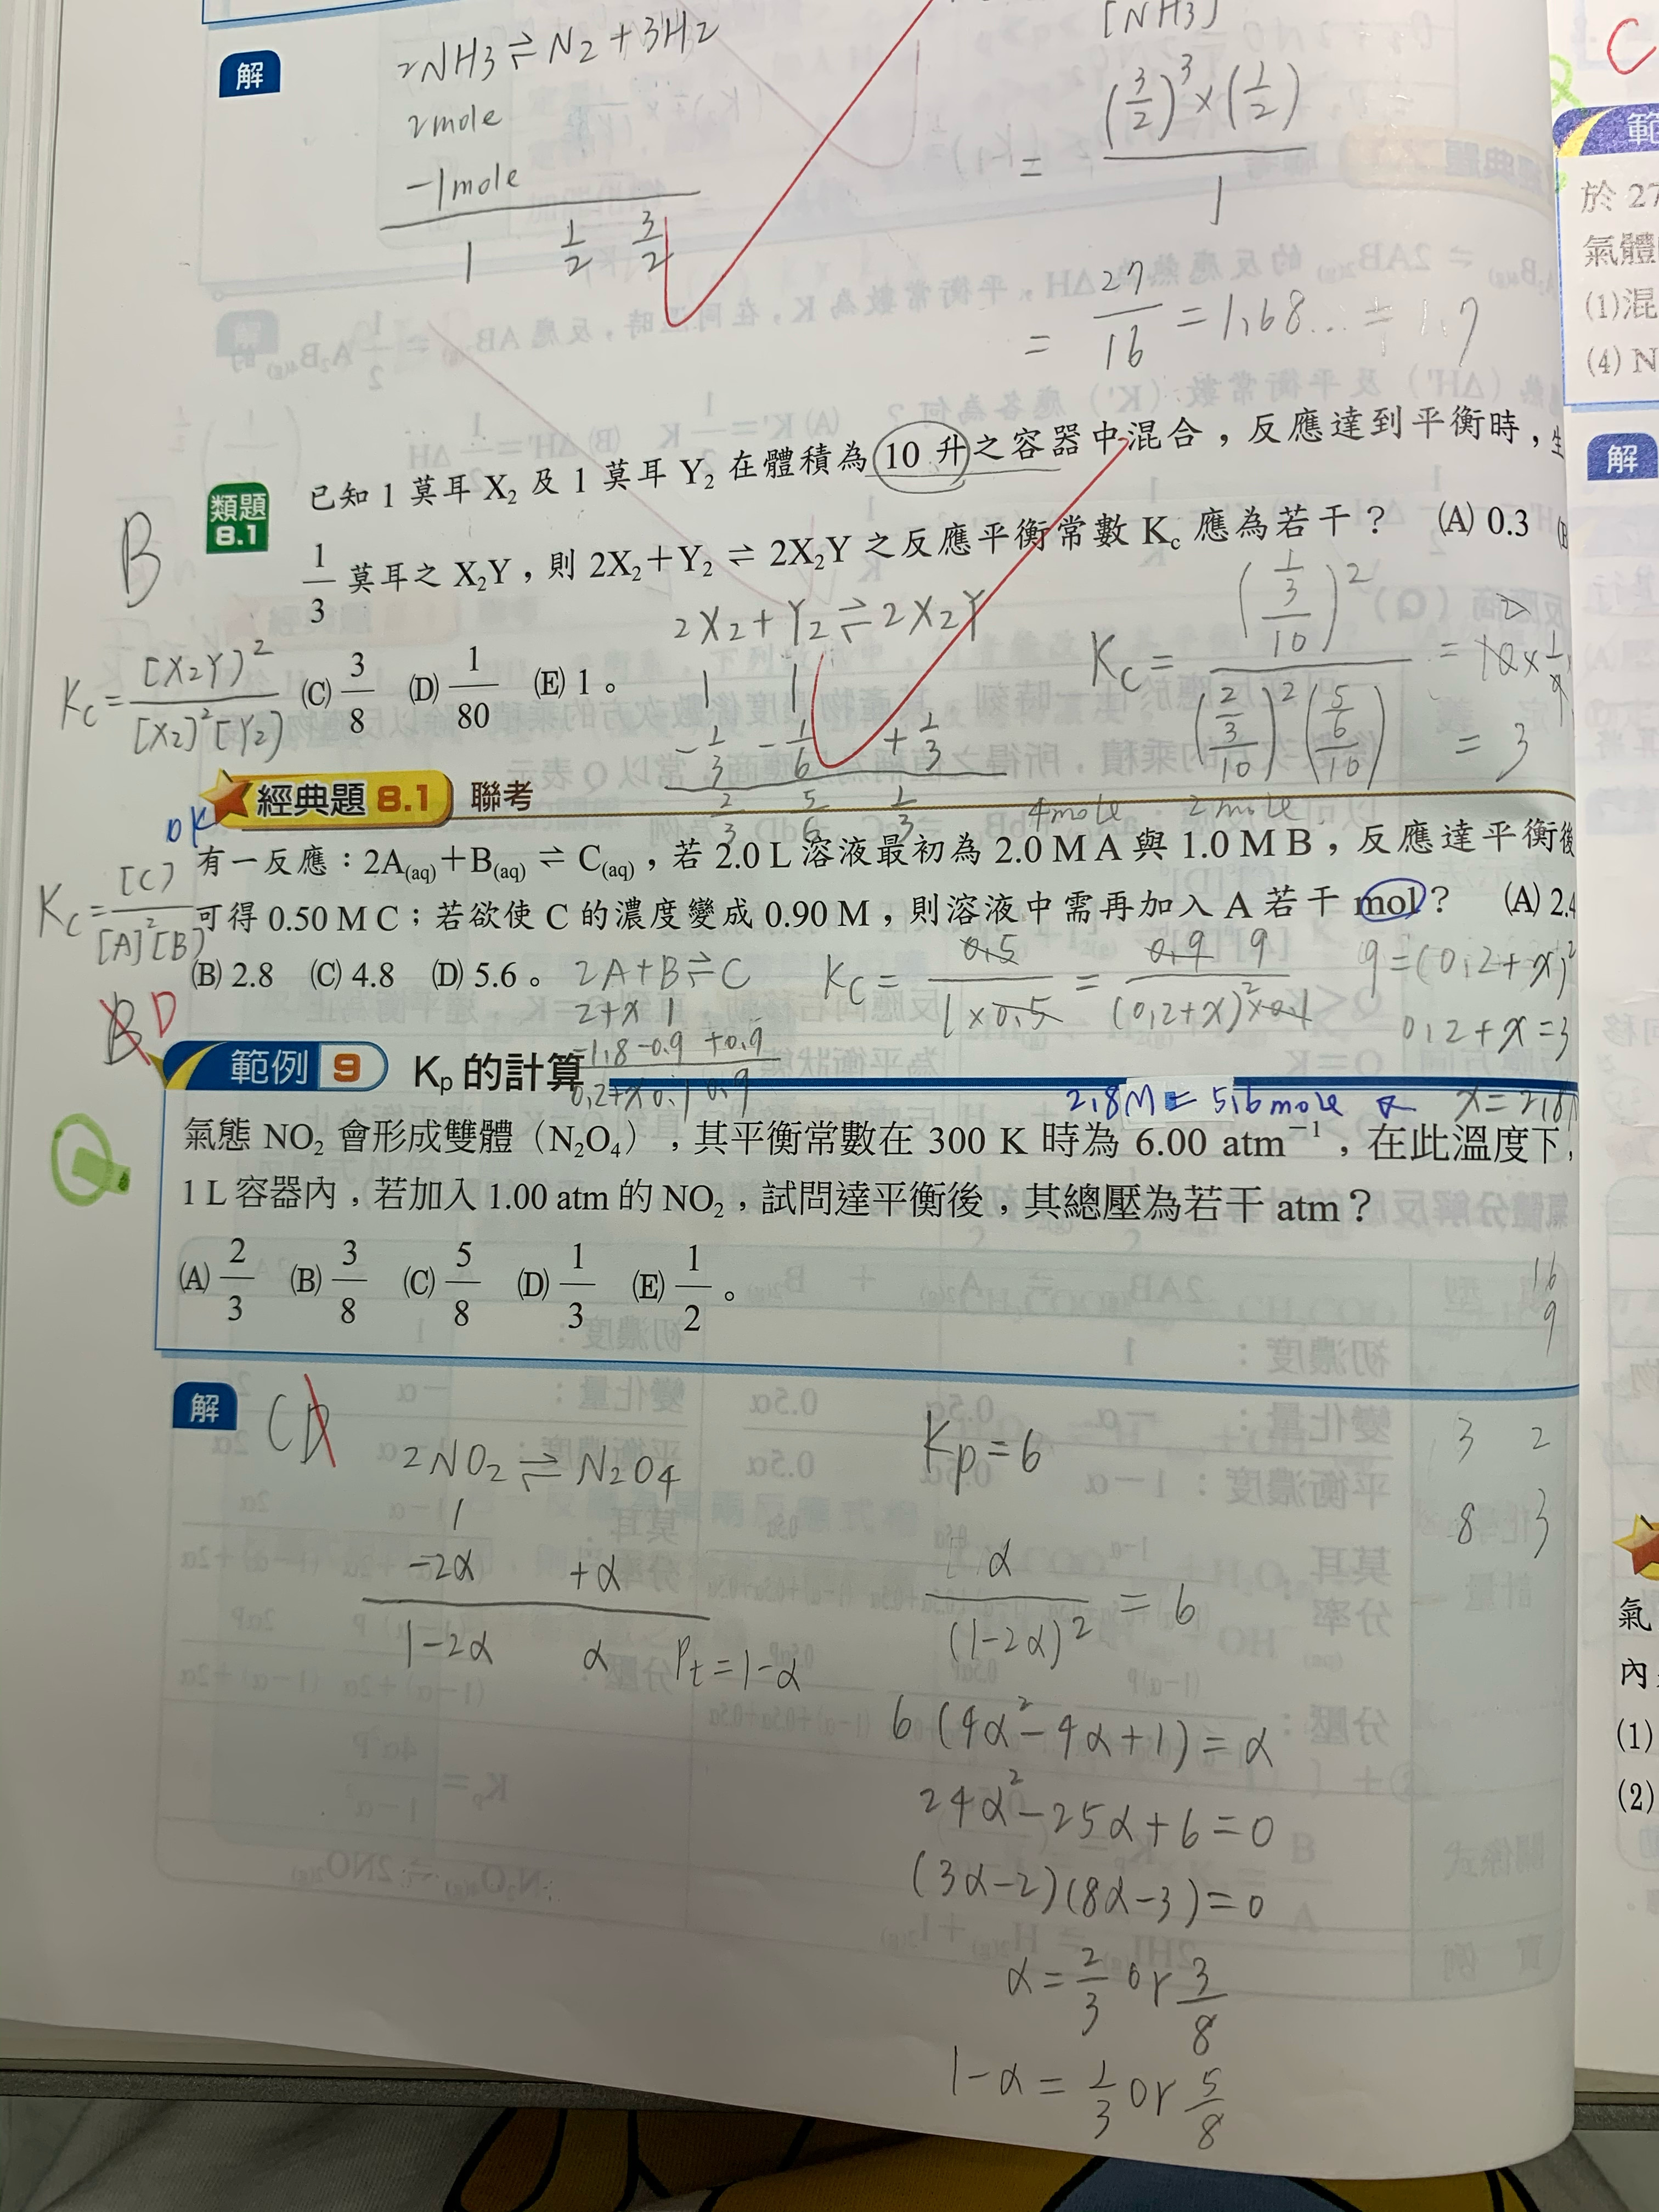 解
2NH3⇌N2+3H2
2mole
-1mole
1 1/2 3/2
[NH3]
= (3/2)³×(1/2) / 1
= 27/16 = 1.68... ≒ 1.7
類題 8.1
已知 1 莫耳 X₂ 及 1 莫耳 Y₂ 在體積為 10 升之容器中混合，反應達到平衡時，生
1/3 莫耳之 X₂Y，則 2X₂＋Y₂ ⇌ 2X₂Y 之反應平衡常數 Kc 應為若干？ (A) 0.3
(C) 3/8 (D) 1/80 (E) 1。
B
Kc = [X2Y]² / [X2]²[Y2]
2X2+Y2⇌2X2Y
1 1
-1/3 -1/6 +1/3
2/3 5/6 1/3
Kc = (1/3/10)² / (2/3/10)²(5/6/10)
= 3
經典題 8.1 聯考
OK
4mole 2mole
有一反應：2A(aq)＋B(aq) ⇌ C(aq)，若 2.0 L 溶液最初為 2.0 M A 與 1.0 M B，反應達平衡後
可得 0.50 M C；若欲使 C 的濃度變成 0.90 M，則溶液中需再加入 A 若干 mol？ (A) 2.4
(B) 2.8 (C) 4.8 (D) 5.6。
Kc = [C] / [A]²[B]
B D
2A+B⇌C
2+x 1
-1.8 -0.9 +0.9
0.2+x 0.1 0.9
Kc = 0.5 / 1×0.5 = 0.9 9 / (0.2+x)²×0.1
9=(0.2+x)²
0.2+x=3
x=2.8
2.8M = 5.6mole
範例 9 Kp 的計算
氣態 NO₂ 會形成雙體（N₂O₄），其平衡常數在 300 K 時為 6.00 atm⁻¹，在此溫度下，
1 L 容器內，若加入 1.00 atm 的 NO₂，試問達平衡後，其總壓為若干 atm？
(A) 2/3 (B) 3/8 (C) 5/8 (D) 1/3 (E) 1/2。
16
9
解
C D
2NO2⇌N2O4
1
-2α +α
1-2α α Pt=1-α
Kp=6
α / (1-2α)² = 6
6(4α²-4α+1)=α
24α²-25α+6=0
(3α-2)(8α-3)=0
α = 2/3 or 3/8
1-α = 1/3 or 5/8
3 2
8 3
C
範
於 27
氣體
(1)混
(4) N
解
氣
內
(1)
(2)